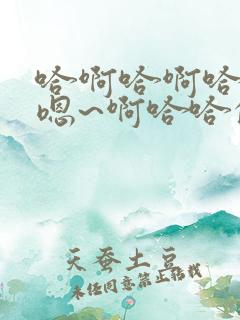 哈啊哈啊哈
嗯~啊哈哈
天蚕土豆
未经同意禁止转载